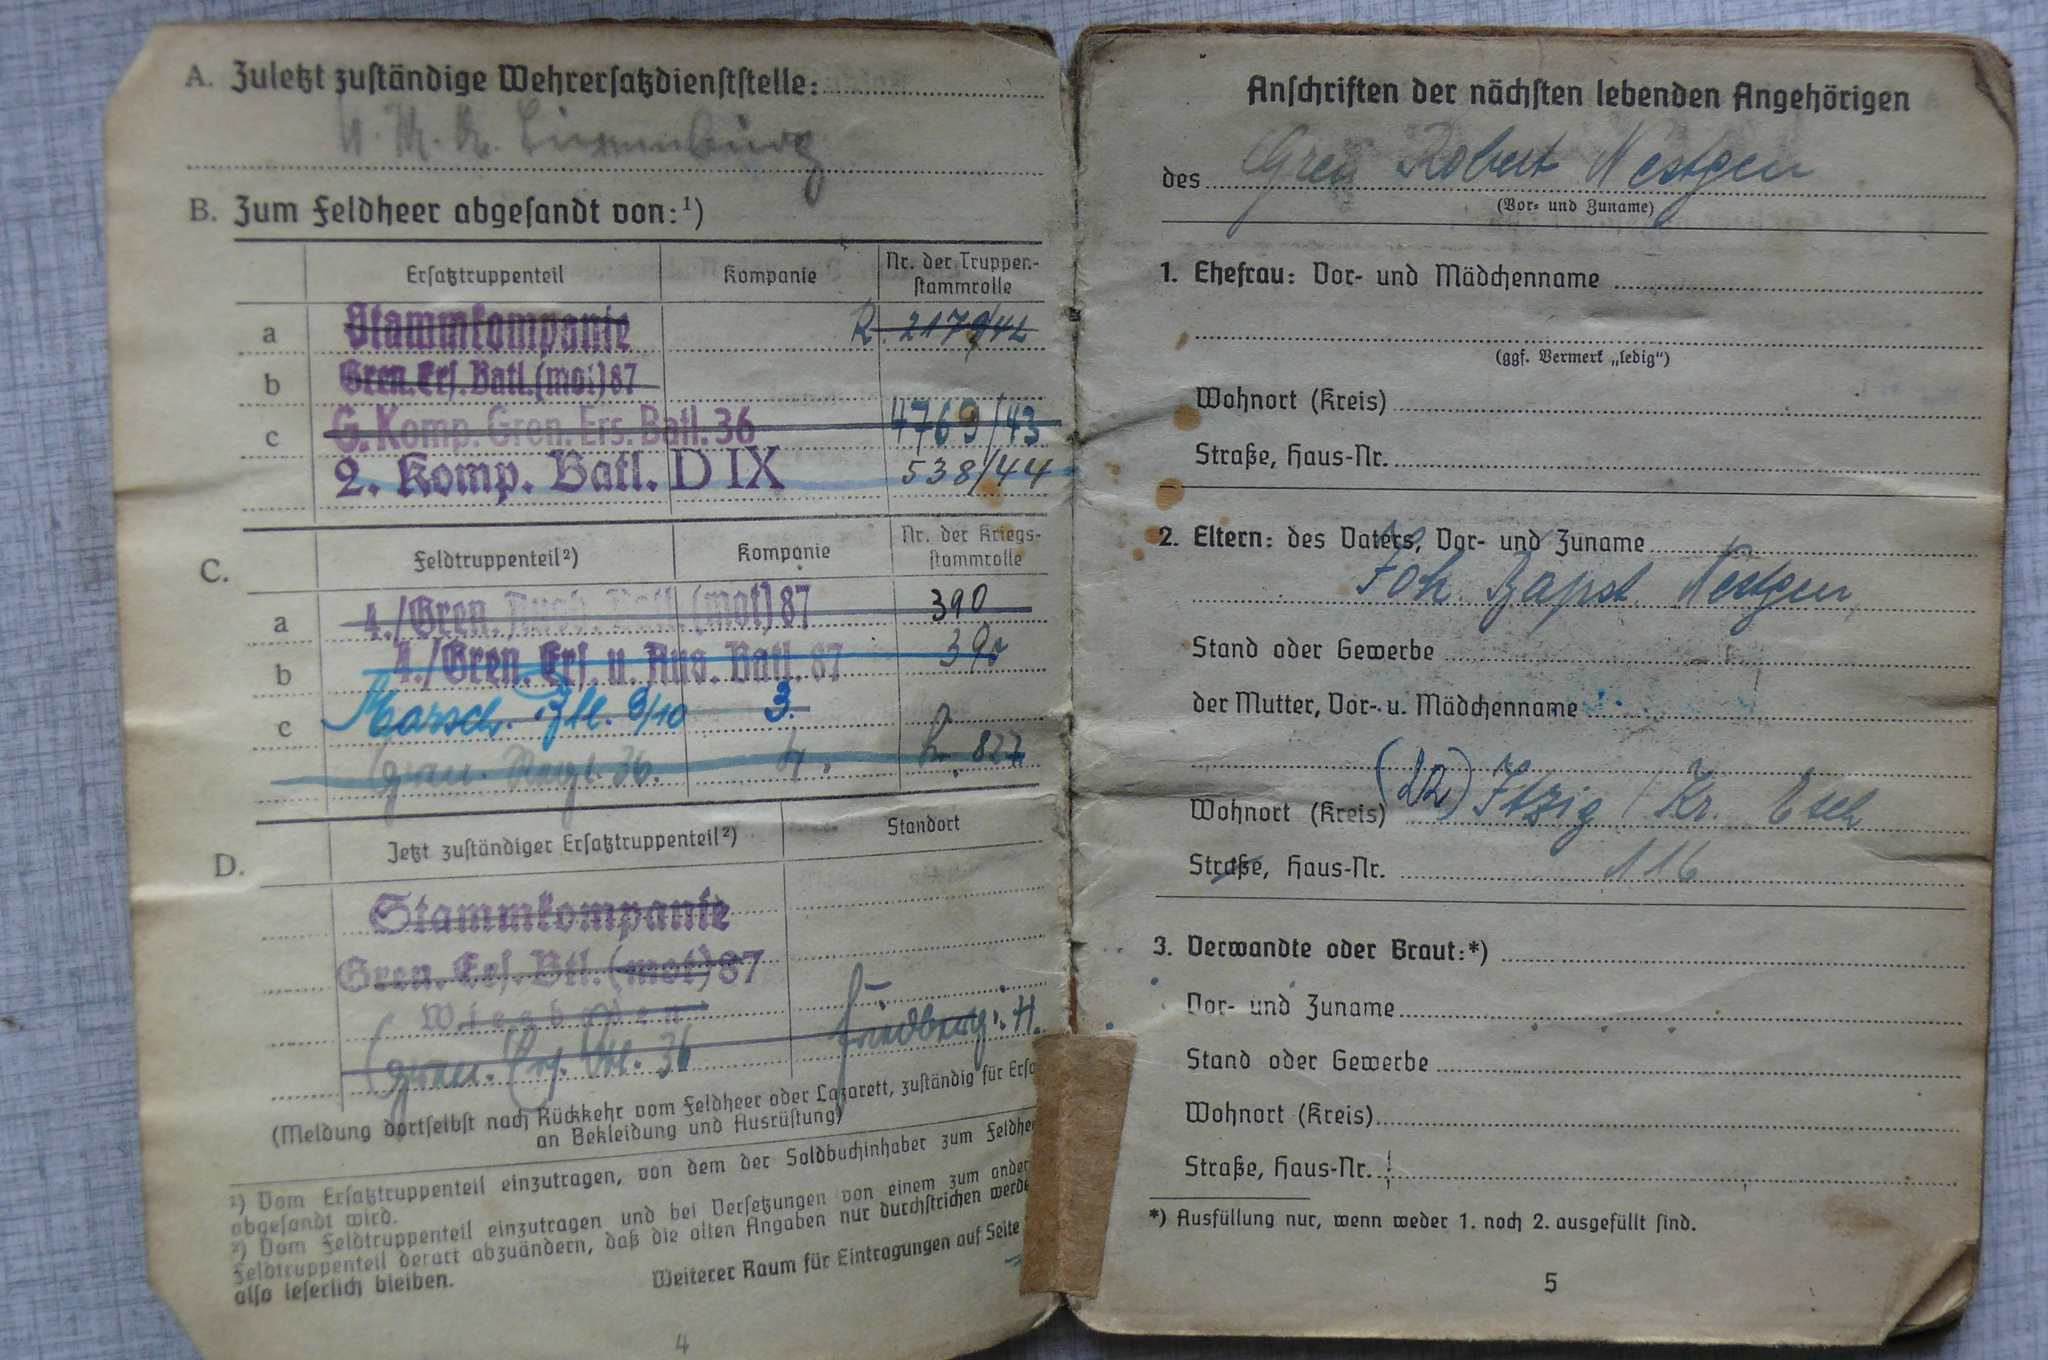 A. Zuletzt zuständige Wehrersatzdienststelle:
W. M. A. Luxemburg
B. Zum Feldheer abgesandt von:¹)
Ersatztruppenteil Kompanie Nr. der Truppen-
stammrolle
a Stammkompanie R. 2179/42
b Gren. Ers. Batl. (mot) 87
c G. Komp. Gren. Ers. Batl. 36 4769/43
2. Komp. Batl. D IX 538/44
C. Feldtruppenteil²) Kompanie Nr. der Kriegs-
stammrolle
a 4./Gren. Ausb. Batl. (mot) 87 390
b 4./Gren. Ers. u. Aus. Batl. 87 390
c Marsch. Btl. 9/10 3.
Gren. Regt. 36. 4. 822
D. Jetzt zuständiger Ersatztruppenteil²) Standort
Stammkompanie
Gren. Ers. Btl. (mot) 87
Wiesbaden
Gren. Ers. Btl. 36 Friedberg i. H.
(Meldung dortselbst nach Rückkehr vom Feldheer oder Lazarett, zuständig für Ersa
an Bekleidung und Ausrüstung)
¹) Vom Ersatztruppenteil einzutragen, von dem der Soldbuchinhaber zum Feldhe
abgesandt wird.
²) Vom Feldtruppenteil einzutragen und bei Versetzungen von einem zum ander
Feldtruppenteil derart abzuändern, daß die alten Angaben nur durchstrichen werde
also leserlich bleiben.
Weiterer Raum für Eintragungen auf Seite
4
Anschriften der nächsten lebenden Angehörigen
des Gren Robert Nestgen
(Vor- und Zuname)
1. Ehefrau: Vor- und Mädchenname
(ggf. Vermerk „ledig“)
Wohnort (Kreis)
Straße, Haus-Nr.
2. Eltern: des Vaters, Vor- und Zuname
Joh. Bapst. Nestgen
Stand oder Gewerbe
der Mutter, Vor- u. Mädchenname
Wohnort (Kreis) (22) Itzig / Kr. Esch
Straße, Haus-Nr. 116
3. Verwandte oder Braut:*)
Vor- und Zuname
Stand oder Gewerbe
Wohnort (Kreis)
Straße, Haus-Nr.
*) Ausfüllung nur, wenn weder 1. noch 2. ausgefüllt sind.
5